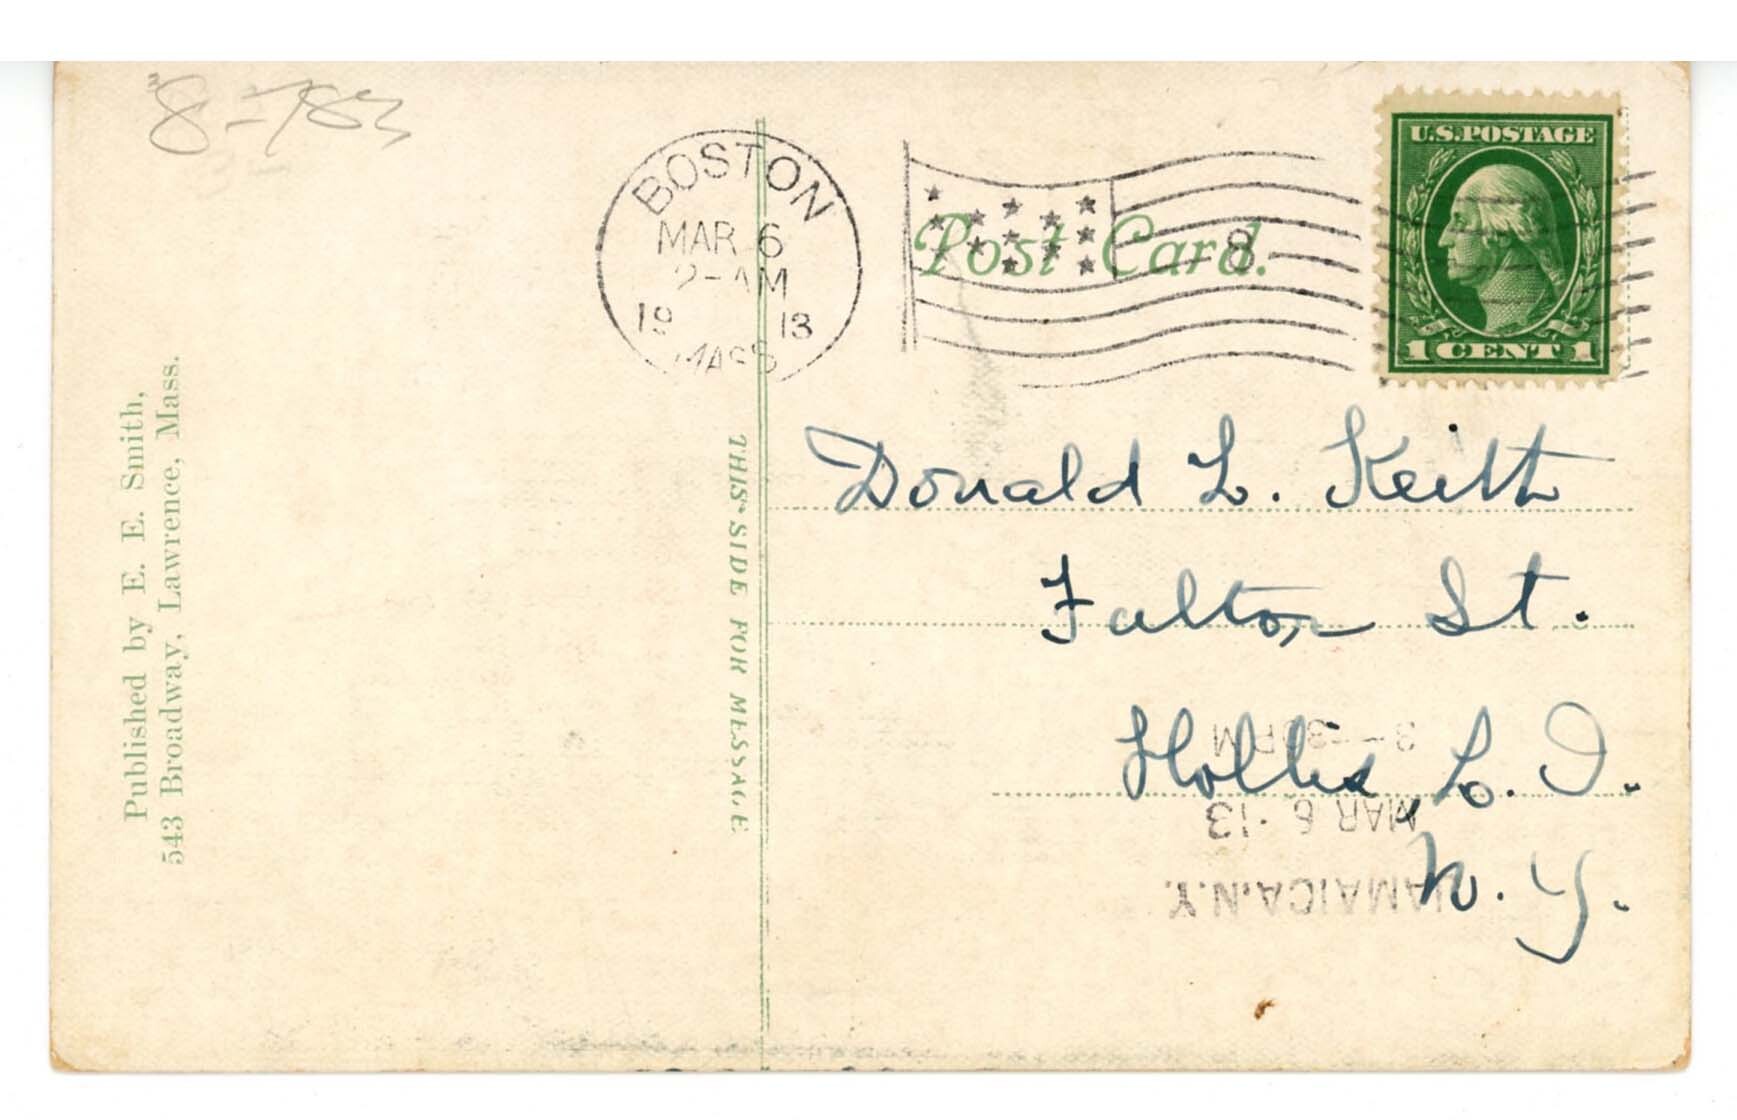 8-783
BOSTON
MAR 6
2-AM
19 13
MASS
8
U.S. POSTAGE
1 CENT 1
Post Card.
THIS SIDE FOR MESSAGE
Published by E. E. Smith,
543 Broadway, Lawrence, Mass.
Donald L. Keith
Fulton St.
Hollis, L. I.
N. Y.
JAMAICA, N.Y.
MAR 6 13
3-30PM